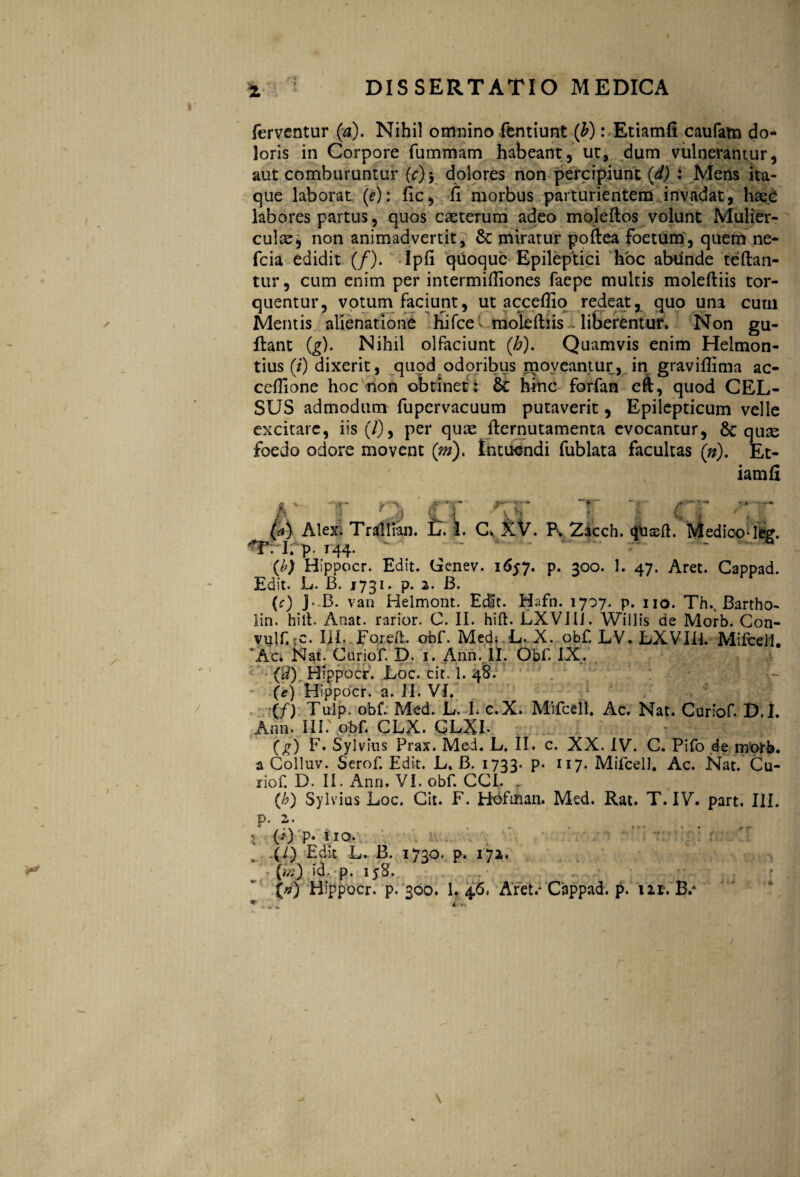 2 DISSERTATIO MEDICA
ſerventur (a). Nihil omnino ſentiunt (b): Etiamſi cauſam do-
loris in Corpore ſummam habeant, ut, dum vulnerantur,
aut comburuntur (c); dolores non percipiunt (d): Mens ita-
que laborat (e): ſic, ſi morbus parturientem invadat, hæc
labores partus, quos cæterum adeo moleſtos volunt Mulier-
culæ, non animadvertit, & miratur poſtea foetum, quem ne-
ſcia edidit (f). Ipſi quoque Epileptici hoc abunde teſtan-
tur, cum enim per intermiſſiones ſaepe multis moleſtiis tor-
quentur, votum faciunt, ut acceſſio redeat, quo una cum
Mentis alienatione hiſce moleſtiis liberentur. Non gu-
ſtant (g). Nihil olfaciunt (h). Quamvis enim Helmon-
tius (i) dixerit, quod odoribus moveantur, in graviſſima ac-
ceſſione hoc non obtinet: & hinc forſan eſt, quod CEL-
SUS admodum ſupervacuum putaverit, Epilepticum velle
excitare, iis (l), per quæ ſternutamenta evocantur, & quæ
foedo odore movent (m). Intuendi ſublata facultas (n). Et-
iamſi
(a) Alex. Trallian. L. I. C. XV. P. Zacch. quæſt. Medico-leg.
T. I. p. 144.
(b) Hippocr. Edit. Genev. 1657. p. 300. l. 47. Aret. Cappad.
Edit. L. B. 1731. p. 2. B.
(c) J. B. van Helmont. Edit. Hafn. 1707. p. 110. Th. Bartho-
lin. hiſt. Anat. rarior. C. II. hiſt. LXVIII. Willis de Morb. Con-
vulſ. c. III. Foreſt. obſ. Med. L. X. obſ. LV. LXVIII. Miſcell.
Ac. Nat. Curioſ. D. 1. Ann. II. Obſ. IX.
(d) Hippocr. Loc. cit. l. 48.
(e) Hippocr. a. II. VI.
(f) Tulp. obſ. Med. L. I. c. X. Miſcell. Ac. Nat. Curioſ. D. I.
Ann. III. obſ. CLX. CLXI.
(g) F. Sylvius Prax. Med. L. II. c. XX. IV. C. Piſo de morb.
a Colluv. Seroſ. Edit. L. B. 1733. p. 117. Miſcell. Ac. Nat. Cu-
rioſ. D. II. Ann. VI. obſ. CCI.
(h) Sylvius Loc. Cit. F. Hofman. Med. Rat. T. IV. part. III.
p. 2.
(i) p. 110.
(l) Edit L. B. 1730. p. 172.
(m) id. p. 158.
(n) Hippocr. p. 300. l. 46. Aret. Cappad. p. 121. B.